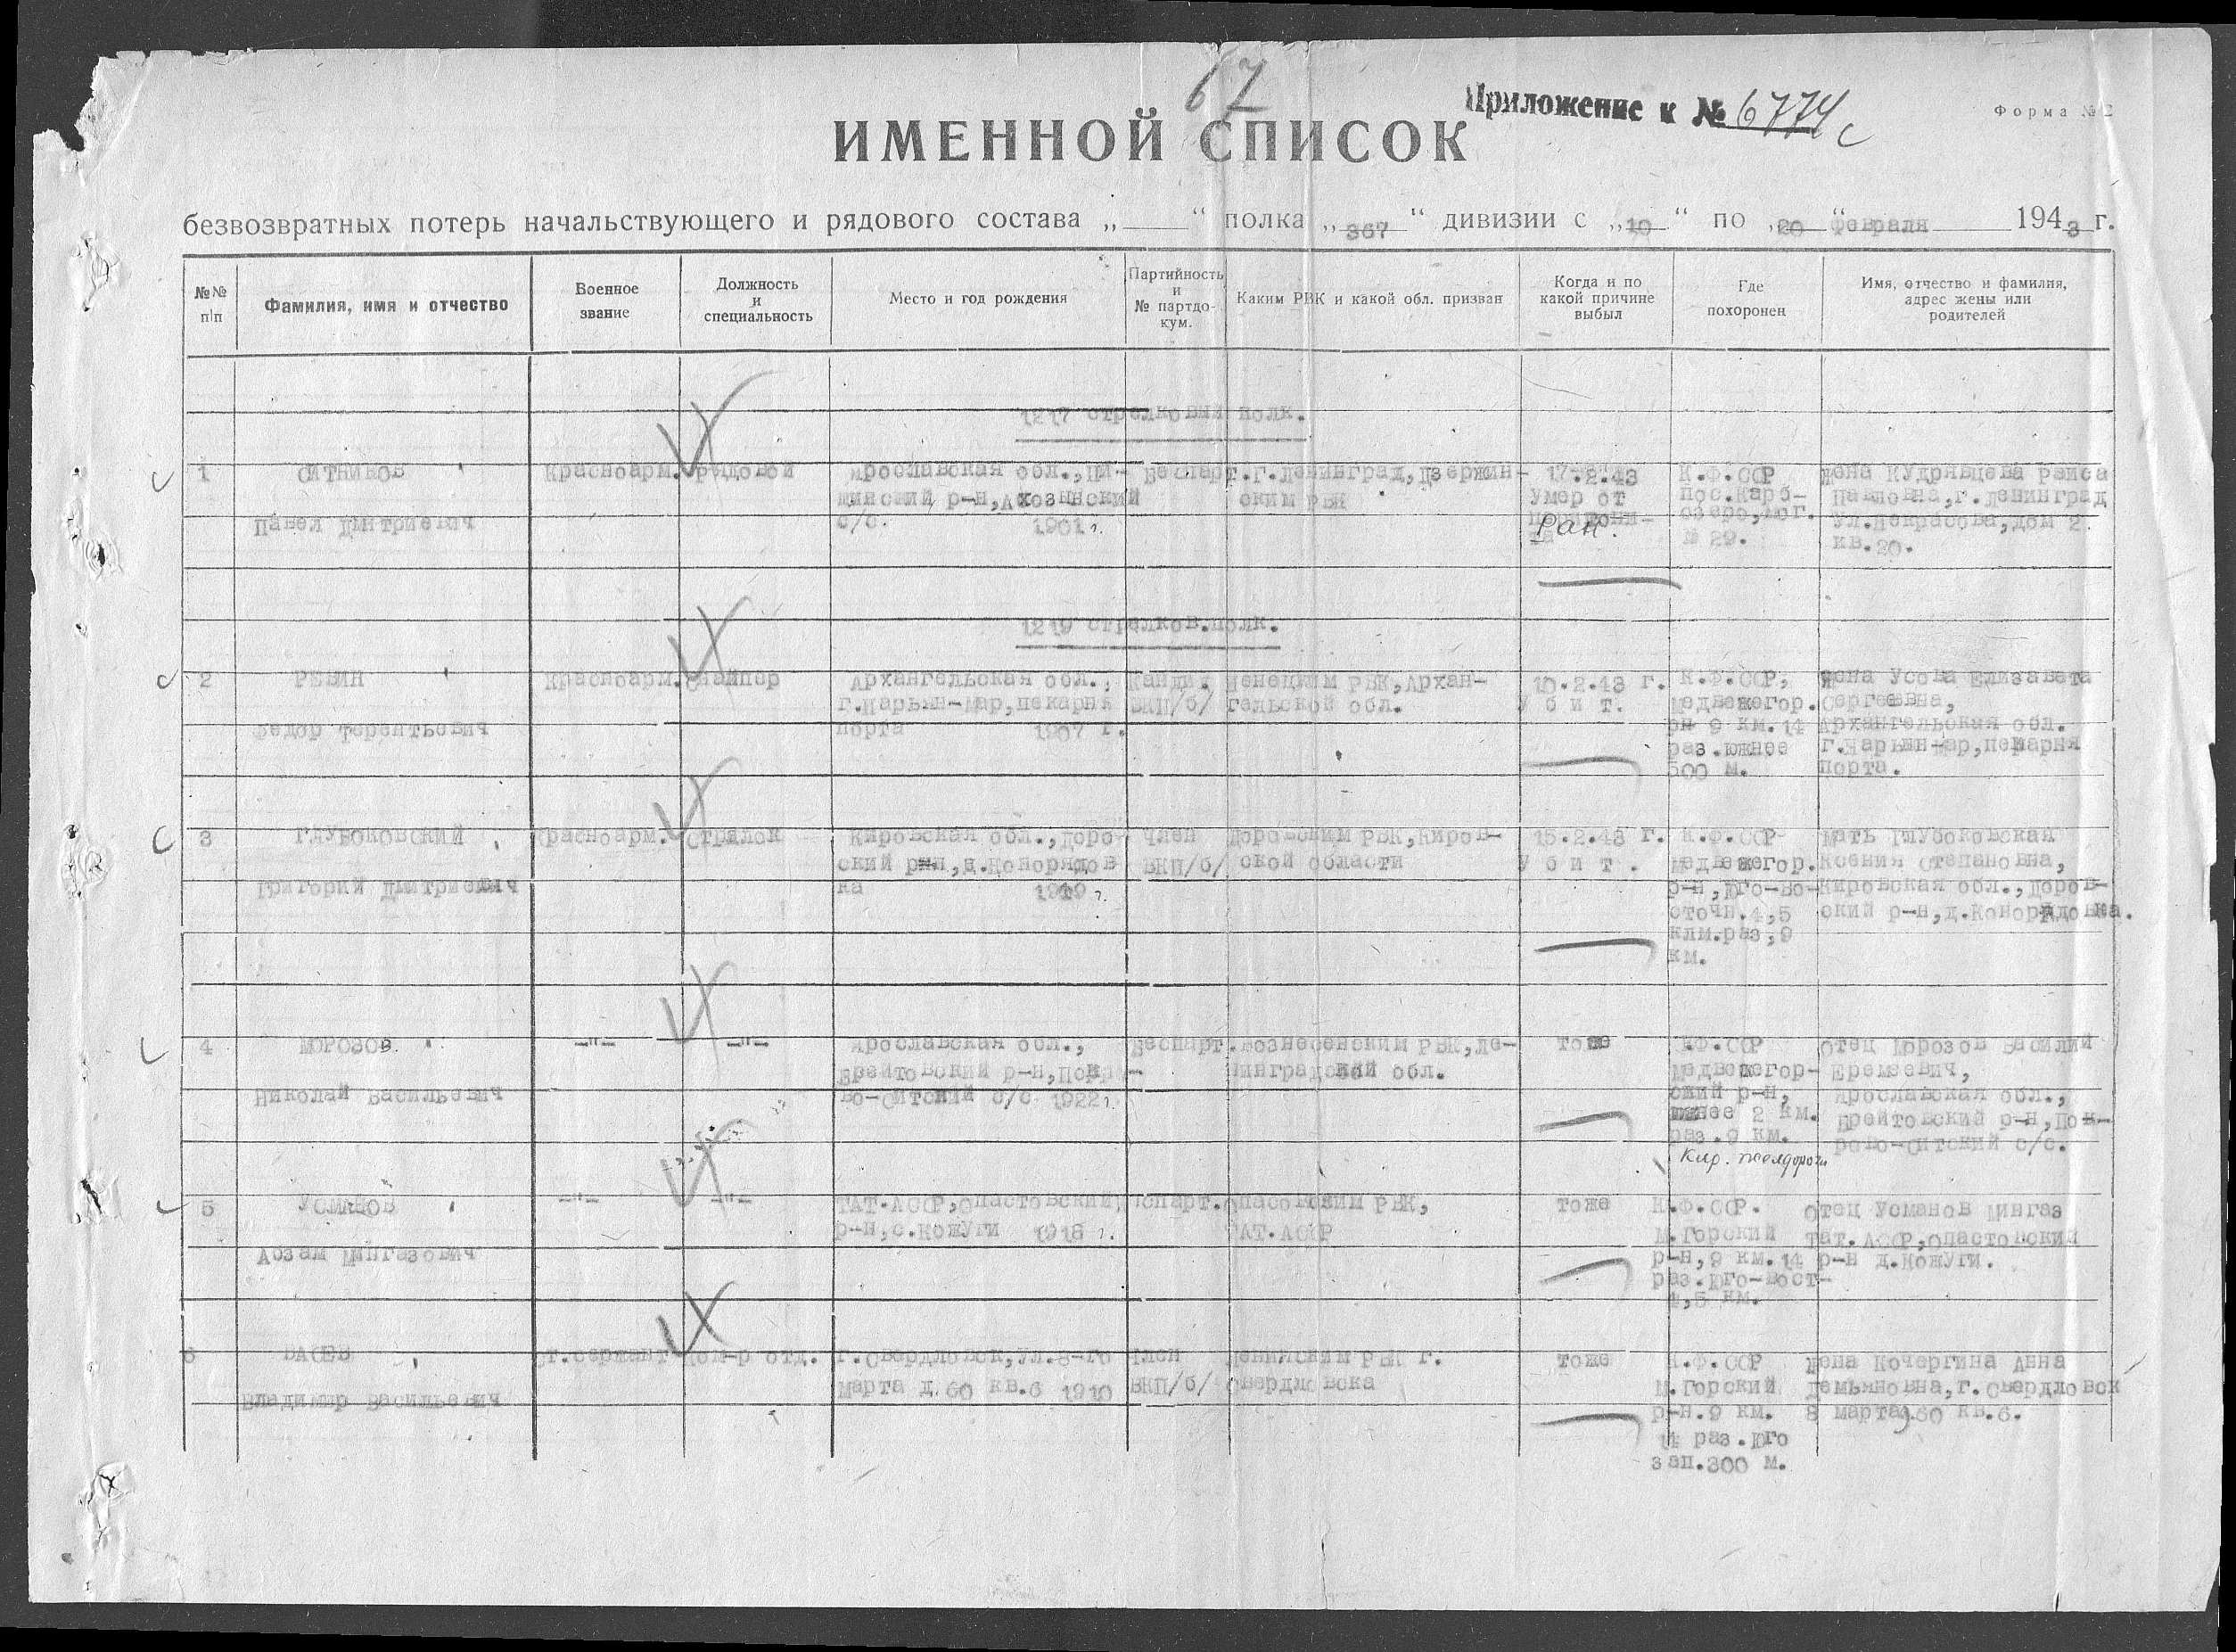 67
Приложение к № 6774с
Форма №2
ИМЕННОЙ СПИСОК
безвозвратных потерь начальствующего и рядового состава „ “ полка „367“ дивизии с „10“ по „20“ февраля 1943 г.
№№ п/п
Фамилия, имя и отчество
Военное звание
Должность и специальность
Место и год рождения
Партийность и № партдокум.
Каким РВК и какой обл. призван
Когда и по какой причине выбыл
Где похоронен
Имя, отчество и фамилия, адрес жены или родителей
1217 стрелковый полк.
1
СИТНИКОВ
Павел Дмитриевич
Красноарм.
Рядовой
Ярославская обл.,
минский р-н,
с/с. 1901г.
Беспарт.
г.Ленинград, Дзержин-
ским РВК
17.2.43
Умер от
Ран.
К.Ф.ССР
пос.Карб-
озеро, мог.
№ 29.
Жена Кудрявцева Раиса
Павловна, г.Ленинград
ул.Некрасова, дом 2
кв.20.
1219 стрелков.полк.
2
РЕВИН
Федор Терентьевич
Красноарм.
Снайпер
Архангельская обл.,
г.Нарьян-Мар, пекарня
порта 1907 г.
Канди.
ВКП/б/
Ненецким РВК, Архан-
гельской обл.
10.2.43 г.
У б и т.
К.Ф.ССР,
Медвежегор.
рн 9 км.14
раз.южнее
500 м.
Жена Усова Елизавета
Сергеевна,
Архангельская обл.
г.Нарьян-Мар, пекарня
порта.
3
ГЛУБОКОВСКИЙ
Григорий Дмитриевич
Красноарм.
Стрелок
Кировская обл., Доро-
ский р-н, д.Конорядов
ка 1919г.
Член
ВКП/б/
Доровским РВК, Киров-
ской области
15.2.43 г.
У б и т.
К.Ф.ССР
Медвежегор.
р-н, Юго-во-
сточн.4,5
клм.раз,9
км.
Мать Глубоковская
Ксения Степановна,
Кировская обл., Доров-
ский р-н, д.Конорядовка.
4
МОРОЗОВ
Николай Васильевич
-"-
-"-
Ярославская обл.,
Брейтовский р-н, Покр
во-Ситский с/с 1922г.
Беспарт.
Вознесенским РВК, Ле-
нинградский обл.
тоже
К.Ф.ССР
Медвежегор-
ский р-н,
южнее 2 км.
раз.9 км.
Кир. желдороги
Отец Морозов Василий
Еремеевич,
Ярославская обл.,
Брейтовский р-н, Пок-
рово-Ситский с/с.
5
УСМАНОВ
Аозам Мингазович
-"-
-"-
ТАТ.АССР, Спастовский,
р-н, с.Кожуги 1918 г.
Беспарт.
Спасовским РВК,
ТАТ.АССР
тоже
К.Ф.ССР.
М.Горский
р-н, 9 км.14
раз.Юго-вост-
4,5 км.
Отец Усманов Мингаз
Тат.АССР, Спастовский
р-н д.Кожуги.
6
Владимир Васильевич
Ст.сержант
Ком-р отд.
г.Свердловск, ул.8-го
Марта д.60 кв.6 1910
Член
ВКП/б/
Ленинским РВК г.
Свердловска
тоже
К.Ф.ССР
М.Горский
р-н.9 км.
14 раз.Юго
зап.300 м.
Жена Кочергина Анна
Демьяновна, г.Свердловск
8 марта, 60 кв.6.